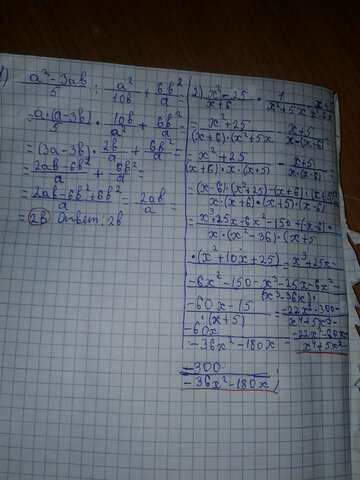 1) (a² - 3ab)/5 : a²/10b + 6b²/a =
= a·(a-3b)/5 · 10b/a² + 6b²/a =
= (3a-3b) · 2b/a + 6b²/a =
= (2ab-6b²)/a + 6b²/a =
= (2ab-6b²+6b²)/a = 2ab/a =
= 2b Ответ: 2b
2) (x²-25)/(x+6) · 1/(x²+5x)
= (x²+25)/((x+6)·(x²+5x - (x+5)/(x·(x-6))
= (x²+25)/((x+6)·x·(x+5) - (x+5)/(x·(x-6))
= ((x-6)·(x²+25)-(x+6)·(x+5)/(x·(x+6)·(x+5)·(x-6)
= x³+25x-6x²-150-(x+6)·/(x·(x²-36)·(x+5)
·(x²+10x+25) = x³+25x-
-6x²-150-x³-25x-6x²-/(x³-36x)·
-60x-15/·(x+5) = -22x²-300-/x⁴+5x³-
-60x/-36x²-180x = -22x²-60x/x⁴+5x³
-300/-36x²-180x